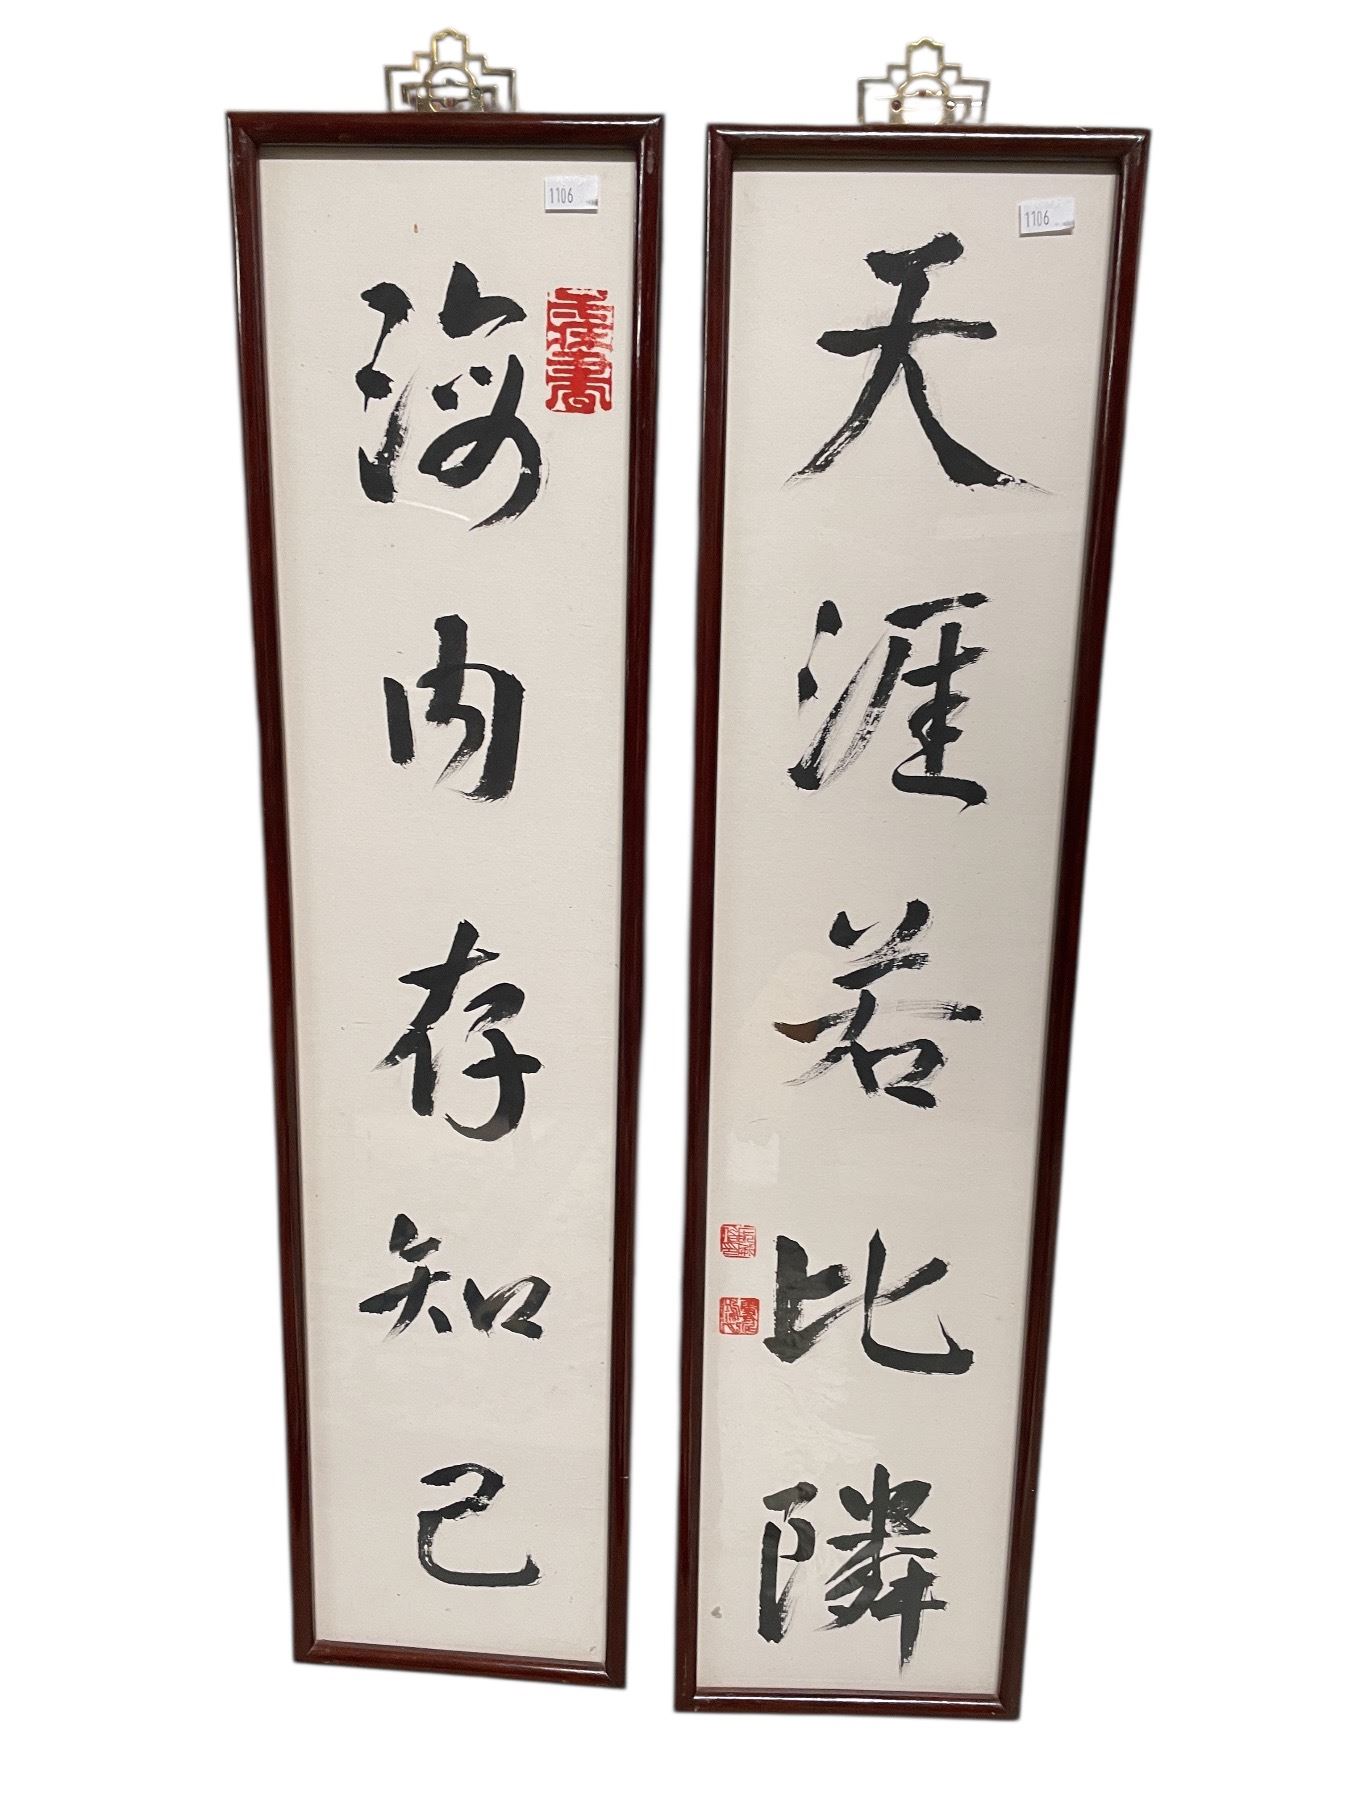 1106
海內存知己
1106
天涯若比隣